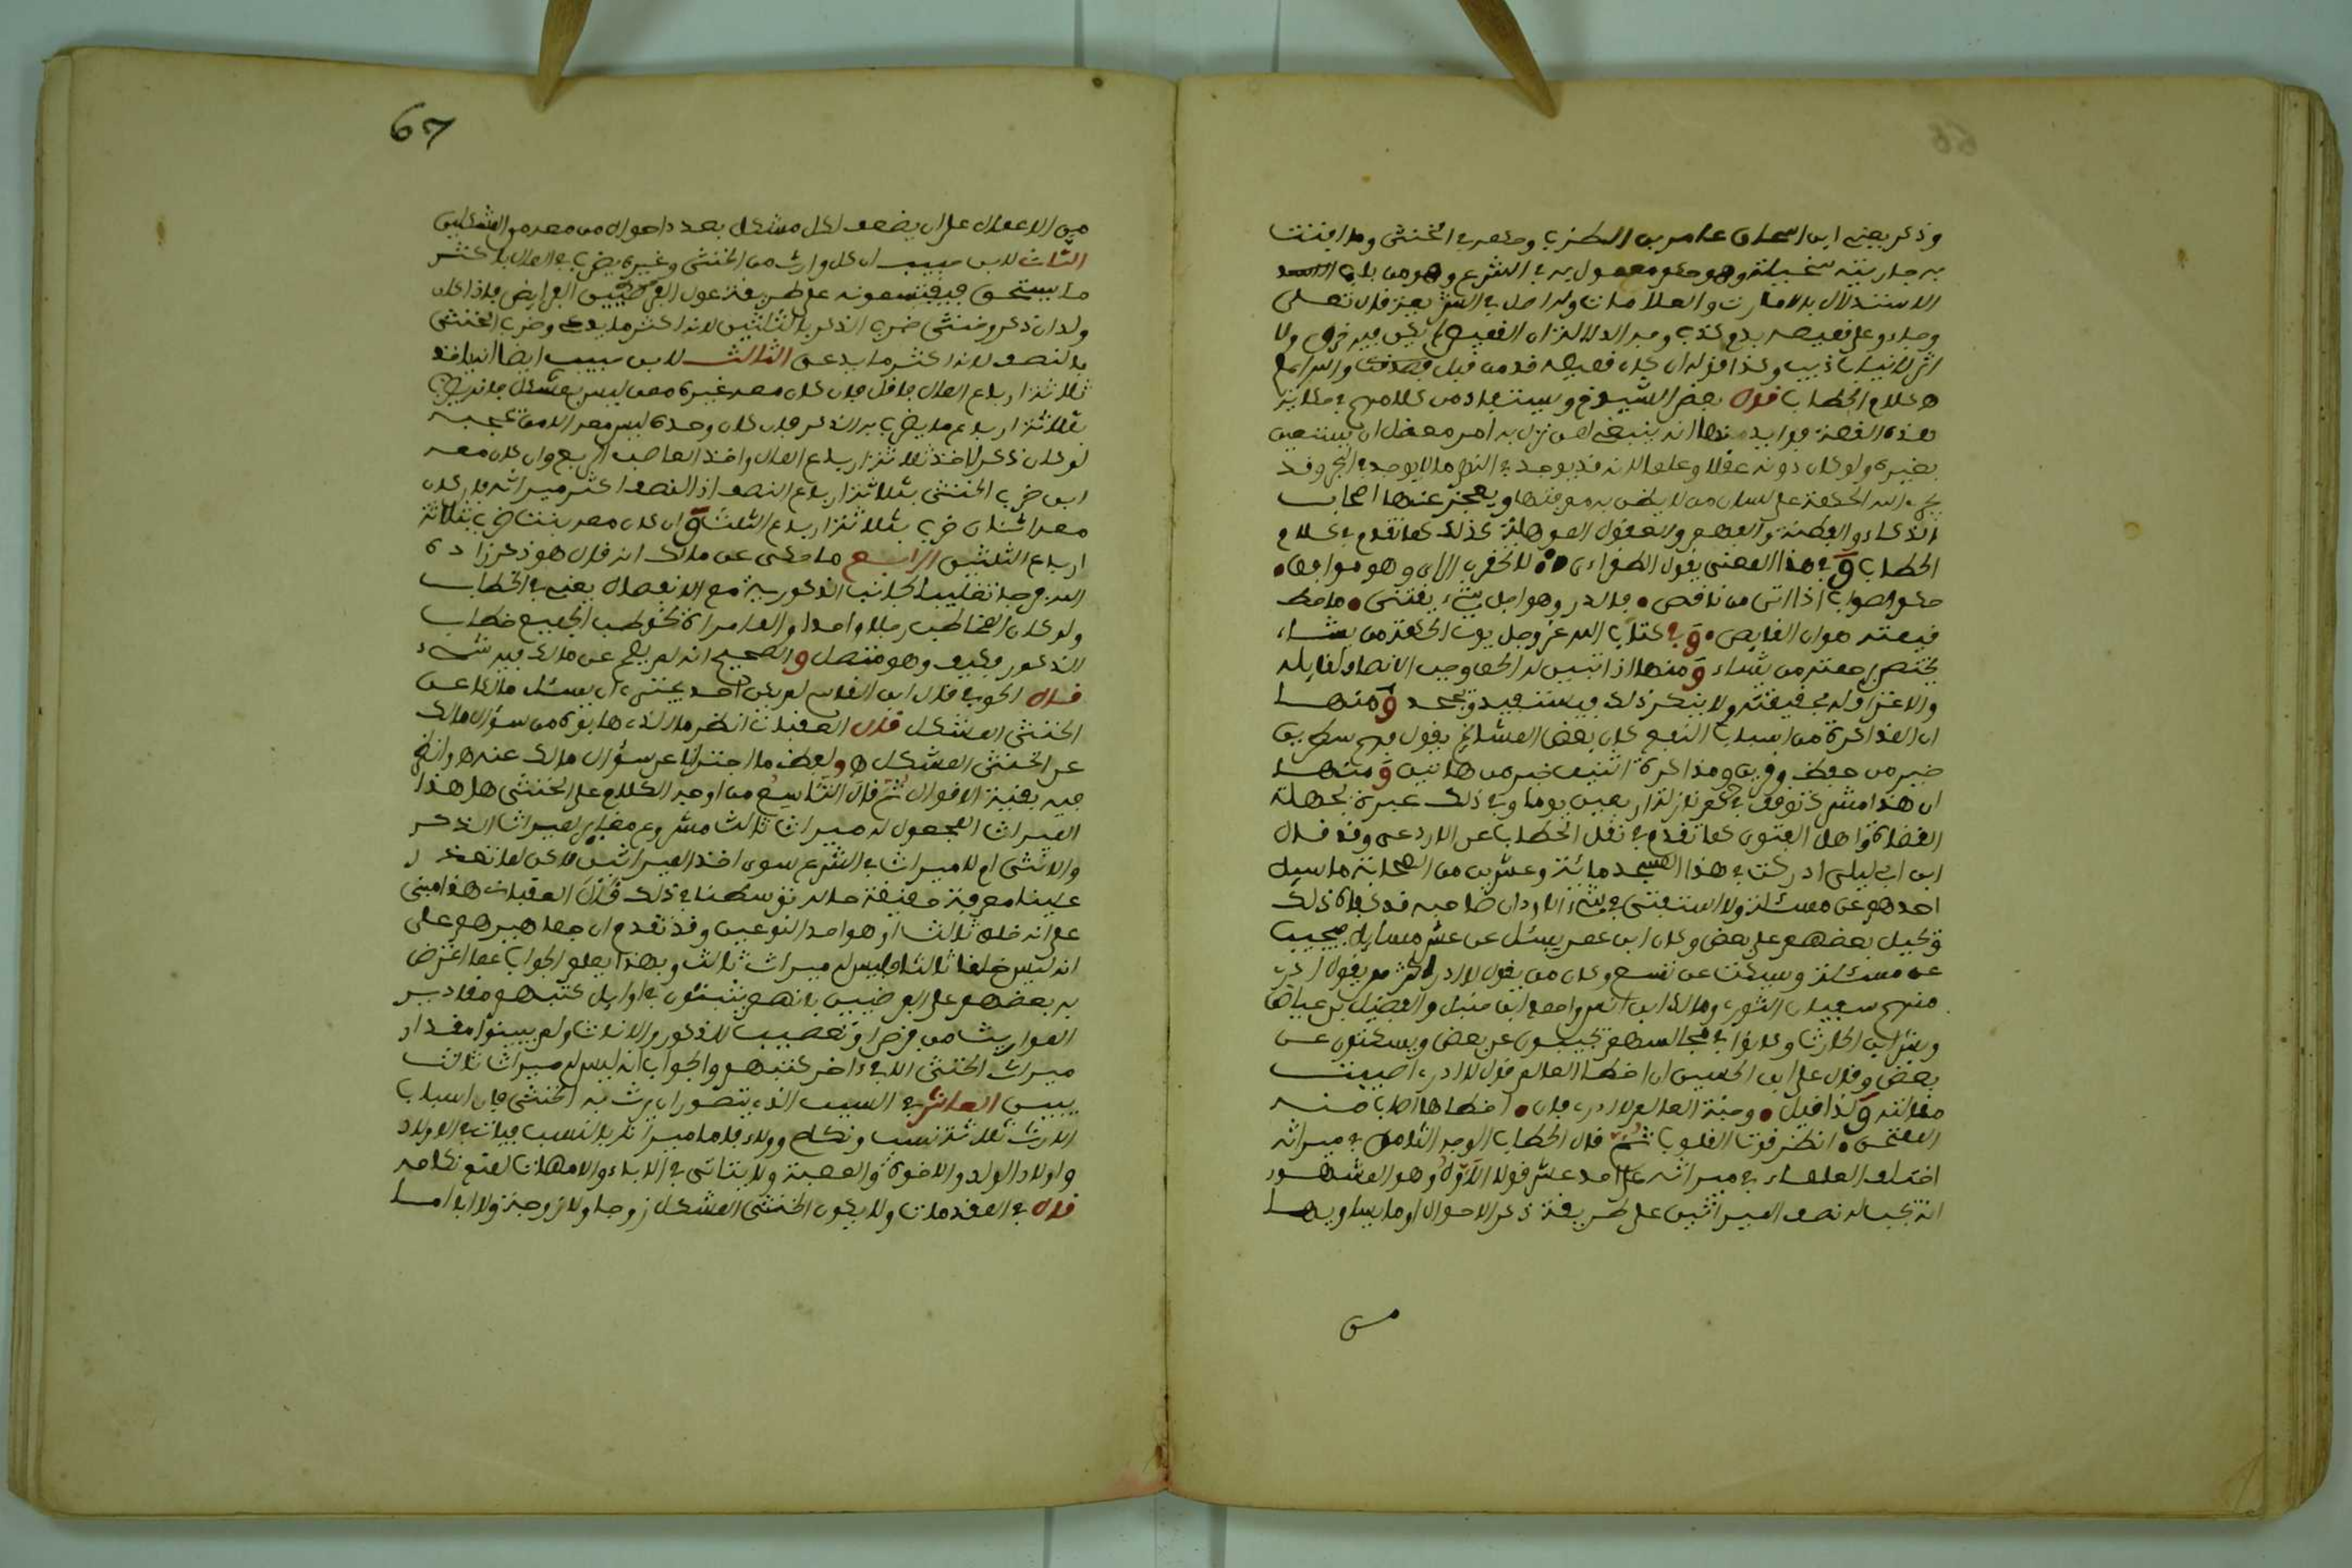 وذكر يعني ابن اسحاق عامر بن الظرب وحكمه في الخنثى وما افتت
به جاريته سخيلة وهو حكم معمول به في الشرع وهو من باب
الاستدلال بالامارات والعلامات وله اصل في الشريعة قال تعلى
وجاءو على قميصه بدم كذب وجه الدلالة ان القميص لم يكن فيه خرق ولا
اثر لانياب ذيب وكذا قوله ان كان قميصه قد من قبل فصدقت
ه كلام الحطاب قال بعض الشيوخ ويستفاد من كلامهم في حكاية
هذه القصة فوايد منها انه ينبغي لمن نزل به امر معضل ان يستعين
بغيره ولو كان دونه عقلا وعلما لانه قد يوجد في النهر ما لا يوجد في البحر وقد
يجري الله الحكمة على لسان من لا يظن به معرفتها ويعجز عنها اصحاب
الذكاء والفطنة والفهم والعقول الموهلة لذلك كما تقدم في كلام
الحطاب وفي هذا المعنى يقول الطغراءي لا تحقرن الراي وهو موافق
حكم الصواب اذا اتى من ناقص • فالدر وهو اجل شيء يقتنى • ما حط
قيمته هوان الغايص • وفي كتاب الله عز وجل يوت الحكمة من يشاء
يختص برحمته من يشاء ومنها اذا تبين له الحق وجب الانصاف لقايله
والاعتراف له بحقيقته ولا ينكر ذلك فيستفيد ويجحد ومنها
ان المذاكرة من اسباب النفع كان بعض المشائخ يقول فهم سطرين
خير من حفظ وقرين ومذاكرة اثنين خير من هاتين ومنها
ان هذا مشرك توقف في حكم نازلة اربعين يوما وفي ذلك عبرة لجهلة
القضاة واهل الفتوى كما تقدم في نقل الحطاب عن الاوزعي وقد قال
ابن ابي ليلى ادركت في هذا المسجد مائة وعشرين من الصحابة ما سيل
احدهم عن مسئلة ولا استفتي في شيء الا ود ان صاحبه قد كفاه ذلك
ويحيل بعضهم على بعض وكان ابن عمر يسئل عن عشر مسايل فيجيب
عن مسئلة ويسكت عن تسع وكان من يقول لا ادري اكثر ممن يقول ادري
منهم سفيان الثوري ومالك ابن انس واحمد ابن حنبل والفضيل بن عياض
وبشر ابن الحارث وكانوا في مجالسهم يجيبون عن بعض ويسكتون عن
بعض وقال علي ابن الحسين ان اخطا العالم قول لا ادري اصيبت
مقاتله ولذا قيل • وجنة العالم لا ادري فان • اخطاها اصاب منه
المقتحم • انظر قوت القلوب ثم قال الحطاب الوجه الثامن في ميراثه
اختلف العلماء في ميراثه على احد عشر قولا الاول وهو المشهور
انه يجب له نصف الميراثين على طريقة ذكر الاحوال او ما يساويها
من
67
من الاعمال على ان يضعف لكل مشكل بعدد احوال من معه من المشكلين
الثاني لابن حبيب ان كل وارث من الخنثى وغيره يضرب في المال باكثر
ما يستحق فيقتسمونه على طريقة عول الفرضيين الفرايض فاذا كان
ولدان ذكر وخنثى ضرب الذكر بالثلثين لانه اكثر ما يدعي وضرب الخنثى
بالنصف لانه اكثر ما يدعي الثالث لابن حبيب ايضا انه ياخذ
ثلاثة ارباع المال فاقل فان كان معه غيره ممن ليس بمشكل فانه يضرب
بثلاثة ارباع ما يضرب به الذكر فان كان وحده ليس معه الا من يحجبه
لو كان ذكرا اخذ ثلاثة ارباع المال واخذ العاصب الربع وان كان معه
ابن ضرب الخنثى بثلاثة ارباع النصف اذ النصف اكثر ميراثه فان كان
معه اثنان ضرب بثلاثة ارباع الثلث وان كان معه بنت ضرب بثلاثة
ارباع الثلثين الرابع ما حكى عن مالك انه قال هو ذكر زاده
الله فرجا تغليبا لجانب الذكورية مع الانفصال يعني في الخطاب
ولو كان المخاطب رجلا واحدا والف امراة لخوطب الجميع خطاب
الذكور فكيف وهو متصل والصحيح انه لم يصح عن مالك فيه شيء
قال الحوفي قال ابن القاسم لم يكن احد يجترئ ان يسئل مالكا عن
الخنثى المشكل قال العقباني انظر
عن الخنثى المشكل ه ولفظه ما اجترانا عن سؤال مالك عنه ه وانظر
فيه بقية الاقوال ثم قال التاسع من اوجه الكلام على الخنثى هل هذا
الميراث المجعول له ميراث ثالث مشروع مغاير لميراث الذكر
والانثى ام لا ميراث في الشرع سوى احد الميراثين لاكن لما تعذر
علينا معرفة حقيقة حاله توسطنا في ذلك قال العقباني هذا مبني
على انه خلق ثالث او هو احد النوعين وقد تقدم ان جماهيرهم على
انه ليس خلقا ثالثا فليس له ميراث ثالث وبهذا يعلم الجواب عما اعترض
به بعضهم على الفرضيين بانهم يثبتون في اوايل كتبهم مقادير
المواريث من فرض او تعصيب للذكور والاناث ولم يبينوا مقدار
ميراث الخنثى الا في ءاخر كتبهم والجواب انه ليس له ميراث ثالث
يبين العاشر في السبب الذي يتصور ان يرث به الخنثى فان اسباب
الارث ثلاثة نسب ونكاح وولاء فاما ميراثه بالنسب فيات في الاولاد
واولاد الولد والاخوة والعصبة ولا يتاتى في الاباء والامهات لمنع نكاحه
قال في المقدمات ولا يكون الخنثى المشكل زوجا ولا زوجة ولا ابا اما